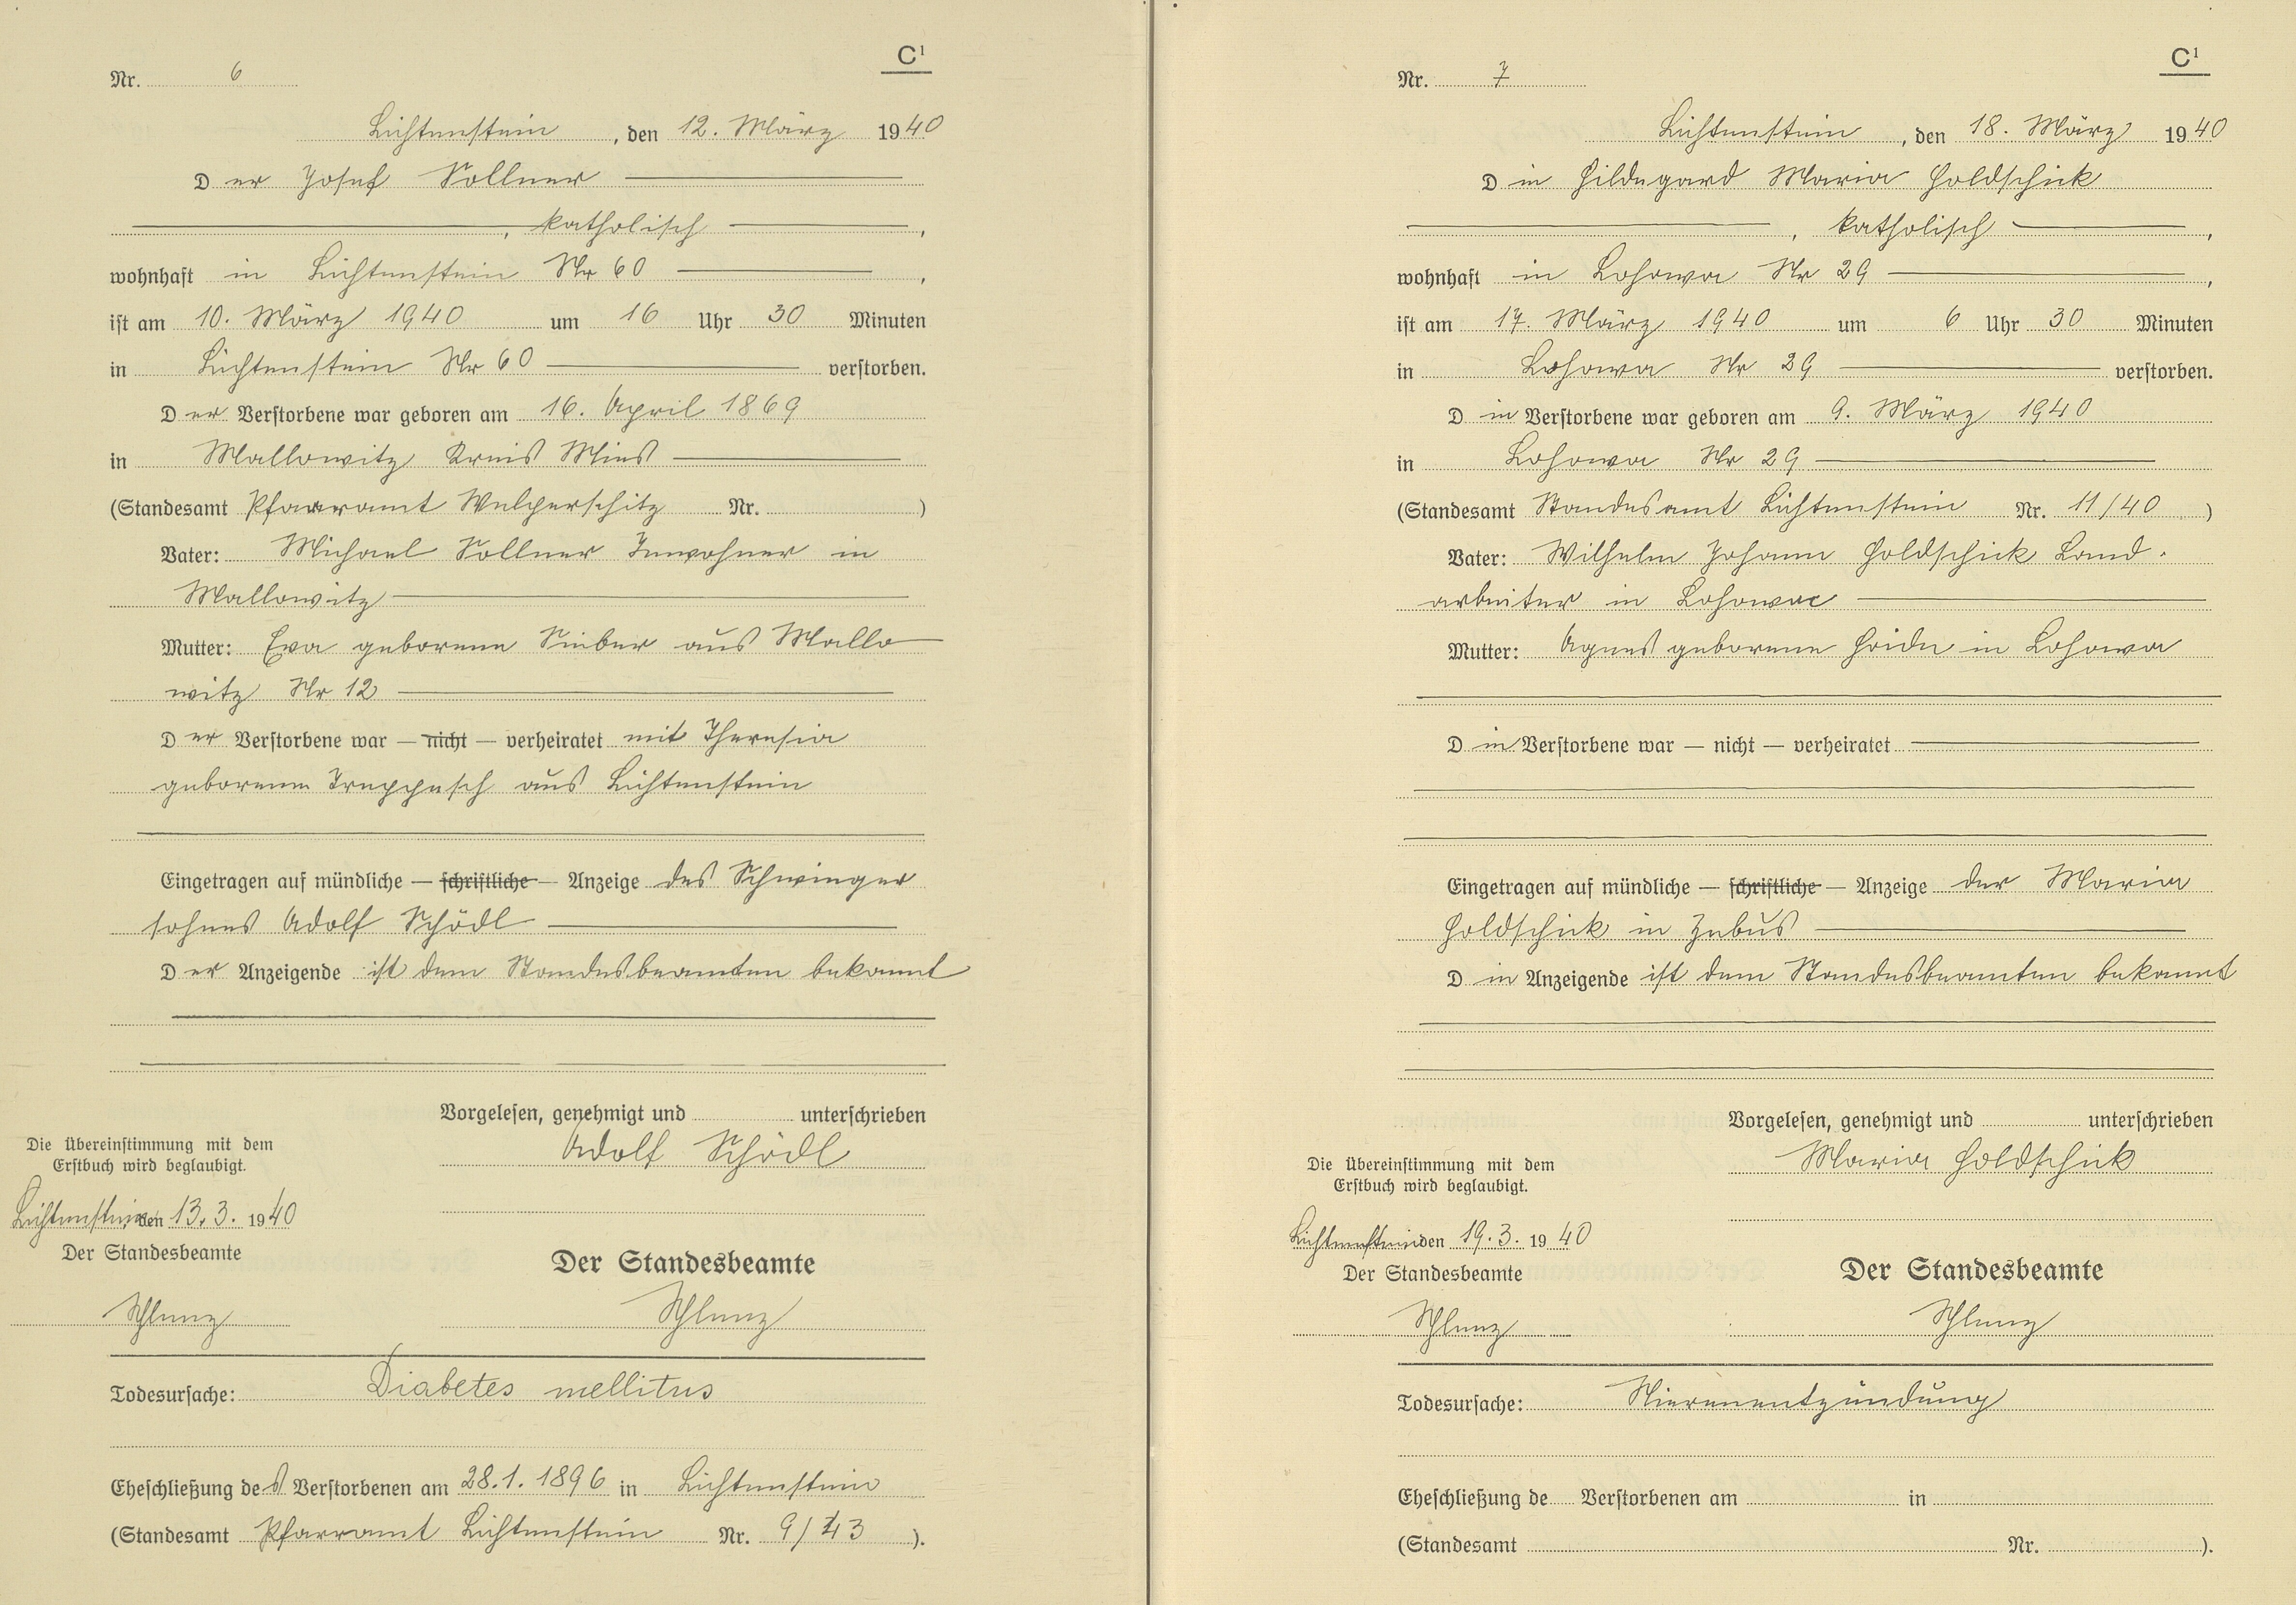 C¹
Nr. 6
Lichtenstein, den 12. März 1940
Der Josef Sollner
, katholisch,
wohnhaft in Lichtenstein Nr 60,
ist am 10. März 1940 um 16 Uhr 30 Minuten
in Lichtenstein Nr 60 verstorben.
Der Verstorbene war geboren am 16. April 1869
in Mallowitz Kreis Mies
(Standesamt Pfarramt Welperschitz Nr. )
Vater: Michael Sollner Inwohner in
Mallowitz
Mutter: Eva geborene Sieber aus Mallo
witz Nr 12
Der Verstorbene war — nicht — verheiratet mit Theresia
geborenen Treppesch aus Lichtenstein
Eingetragen auf mündliche — schriftliche — Anzeige des Schwinger
sohnes Adolf Schödl
Der Anzeigende ist dem Standesbeamten bekannt
Vorgelesen, genehmigt und unterschrieben
Adolf Schödl
Die Übereinstimmung mit dem
Erstbuch wird beglaubigt.
Lichtenstein, den 13. 3. 1940
Der Standesbeamte
Schlunz
Der Standesbeamte
Schlunz
Todesursache: Diabetes mellitus
Eheschließung des Verstorbenen am 28. 1. 1896 in Lichtenstein
(Standesamt Pfarramt Lichtenstein Nr. 9/43 ).
C¹
Nr. 7
Lichtenstein, den 18. März 1940
Die Hildegard Maria Holdschick
, katholisch,
wohnhaft in Lohowa Nr 29,
ist am 17. März 1940 um 6 Uhr 30 Minuten
in Lohowa Nr 29 verstorben.
Die Verstorbene war geboren am 9. März 1940
in Lohowa Nr 29
(Standesamt Standesamt Lichtenstein Nr. 11/40 )
Vater: Wilhelm Johann Holdschick Land-
arbeiter in Lohowa
Mutter: Agnes geborene Heide in Lohowa
Die Verstorbene war — nicht — verheiratet
Eingetragen auf mündliche — schriftliche — Anzeige der Maria
Holdschick in Zebus
Die Anzeigende ist dem Standesbeamten bekannt
Vorgelesen, genehmigt und unterschrieben
Maria Holdschick
Die Übereinstimmung mit dem
Erstbuch wird beglaubigt.
Lichtenstein den 19. 3. 1940
Der Standesbeamte
Schlunz
Der Standesbeamte
Schlunz
Todesursache: Nierenentzündung
Eheschließung de Verstorbenen am in
(Standesamt Nr. ).